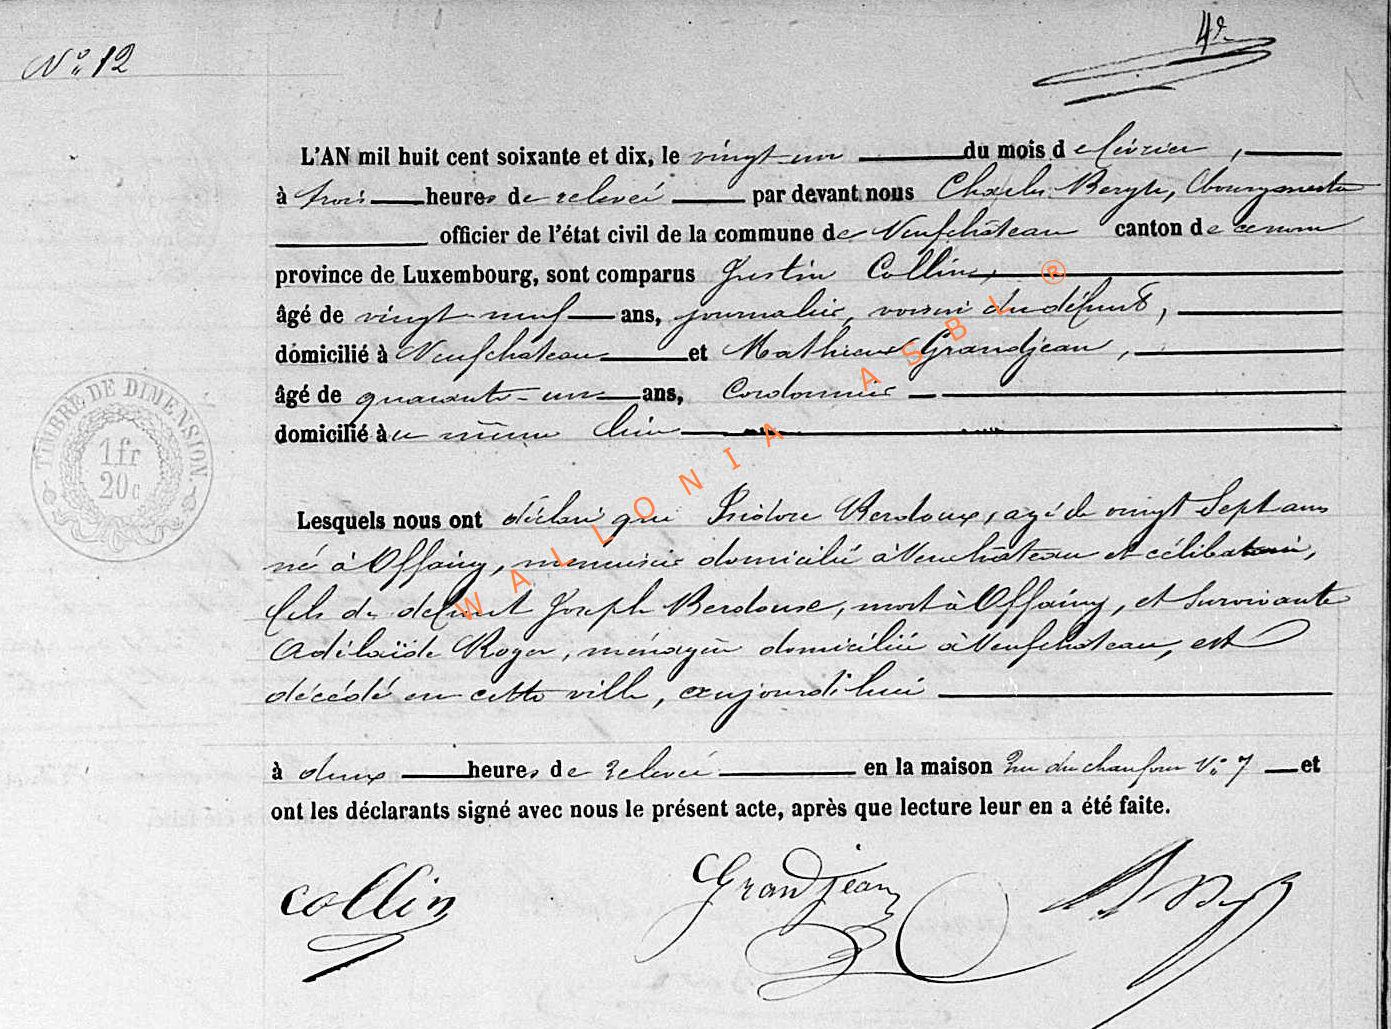 Nº 12
4e
L'AN mil huit cent soixante et dix, le vingt-un du mois de février,
à trois heures de relevée par devant nous Charles Bergh, Bourgmestre
officier de l'état civil de la commune de Neufchâteau canton de ce nom
province de Luxembourg, sont comparus Justin Collin,
âgé de vingt-neuf ans, journalier, voisin du défunt,
domicilié à Neufchateau et Mathieu Grandjean,
âgé de quarante-un ans, Cordonnier
domicilié à u même lieu
TIMBRE DE DIMENSION.
1fr
20c
Lesquels nous ont déclaré que Isidore Berdoux, agé de vingt Sept ans
né à Offaing, menuisier domicilié à Neuchâteau et célibataire,
fils de défunt Joseph Berdouxe, mort à Offaing, et survivante
Adélaïde Roger, ménagère domiciliée à Neufchateau, est
décédé en cette ville, aujourd'hui
à deux heures de relevée en la maison rue du chaufour Nº 7 et
ont les déclarants signé avec nous le présent acte, après que lecture leur en a été faite.
Collin Grandjean
WALLONIA ASBL ®